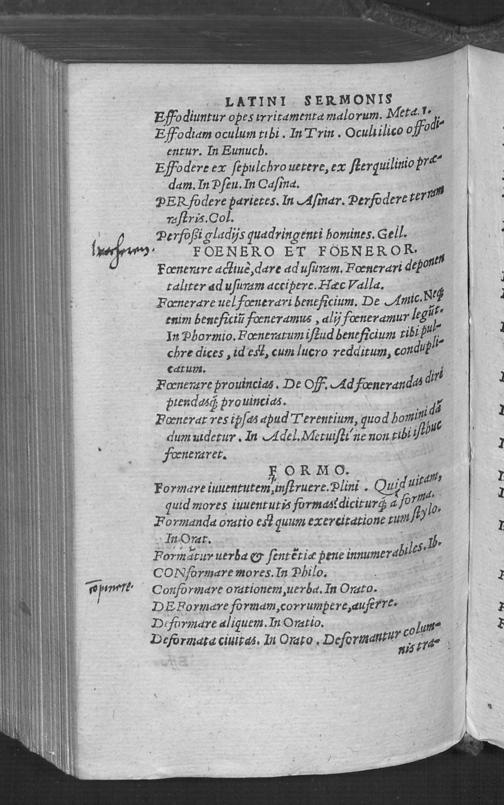 LATINI SERMONIS
Effodiuntur opes irritamenta malorum. Meta.1.
Effodiam oculum tibi. In Trin. Oculi ilico offodi-
entur. In Eunuch.
Effodere ex sepulchro uetere, ex sterquilinio præ-
dam. In Pseu. In Casina.
PERfodere parietes. In Asinar. Perfodere terram
rastris. Col.
Perfoßi gladijs quadringenti homines. Gell.
FOENERO ET FOENEROR.
Fœnerare actiuè, dare ad usuram. Fœnerari deponen
taliter ad usuram accipere. Hæc Valla.
Fœnerare uel fœnerari beneficium. De Amic. Neq;
enim beneficiũ fœneramus, alij fœneramur legũt.
In Phormio. Fœneratum istud beneficium tibi pul-
chre dices, id est, cum lucro redditum, condupli-
catum.
Fœnerare prouincias. De Off. Ad fœnerandas diri
piendasq; prouincias.
Fœnerat res ipsas apud Terentium, quod homini dã
dum uidetur. In Adel. Metuisti ne non tibi isthuc
fœneraret.
FORMO.
Formare iuuentutem, instruere. Plini. Quid uitam,
quid mores iuuentutis formas? diciturq; à forma.
Formanda oratio est quum exercitatione tum stylo.
In Orat.
Formãtur uerba & sentẽtiæ pene innumerabiles. Ib.
CONformare mores. In Philo.
Conformare orationem, uerba. In Orato.
DEFormare formam, corrumpere, auferre.
Deformare aliquem. In Oratio.
Deformata ciuitas. In Orato. Deformantur colum-
nis tra-